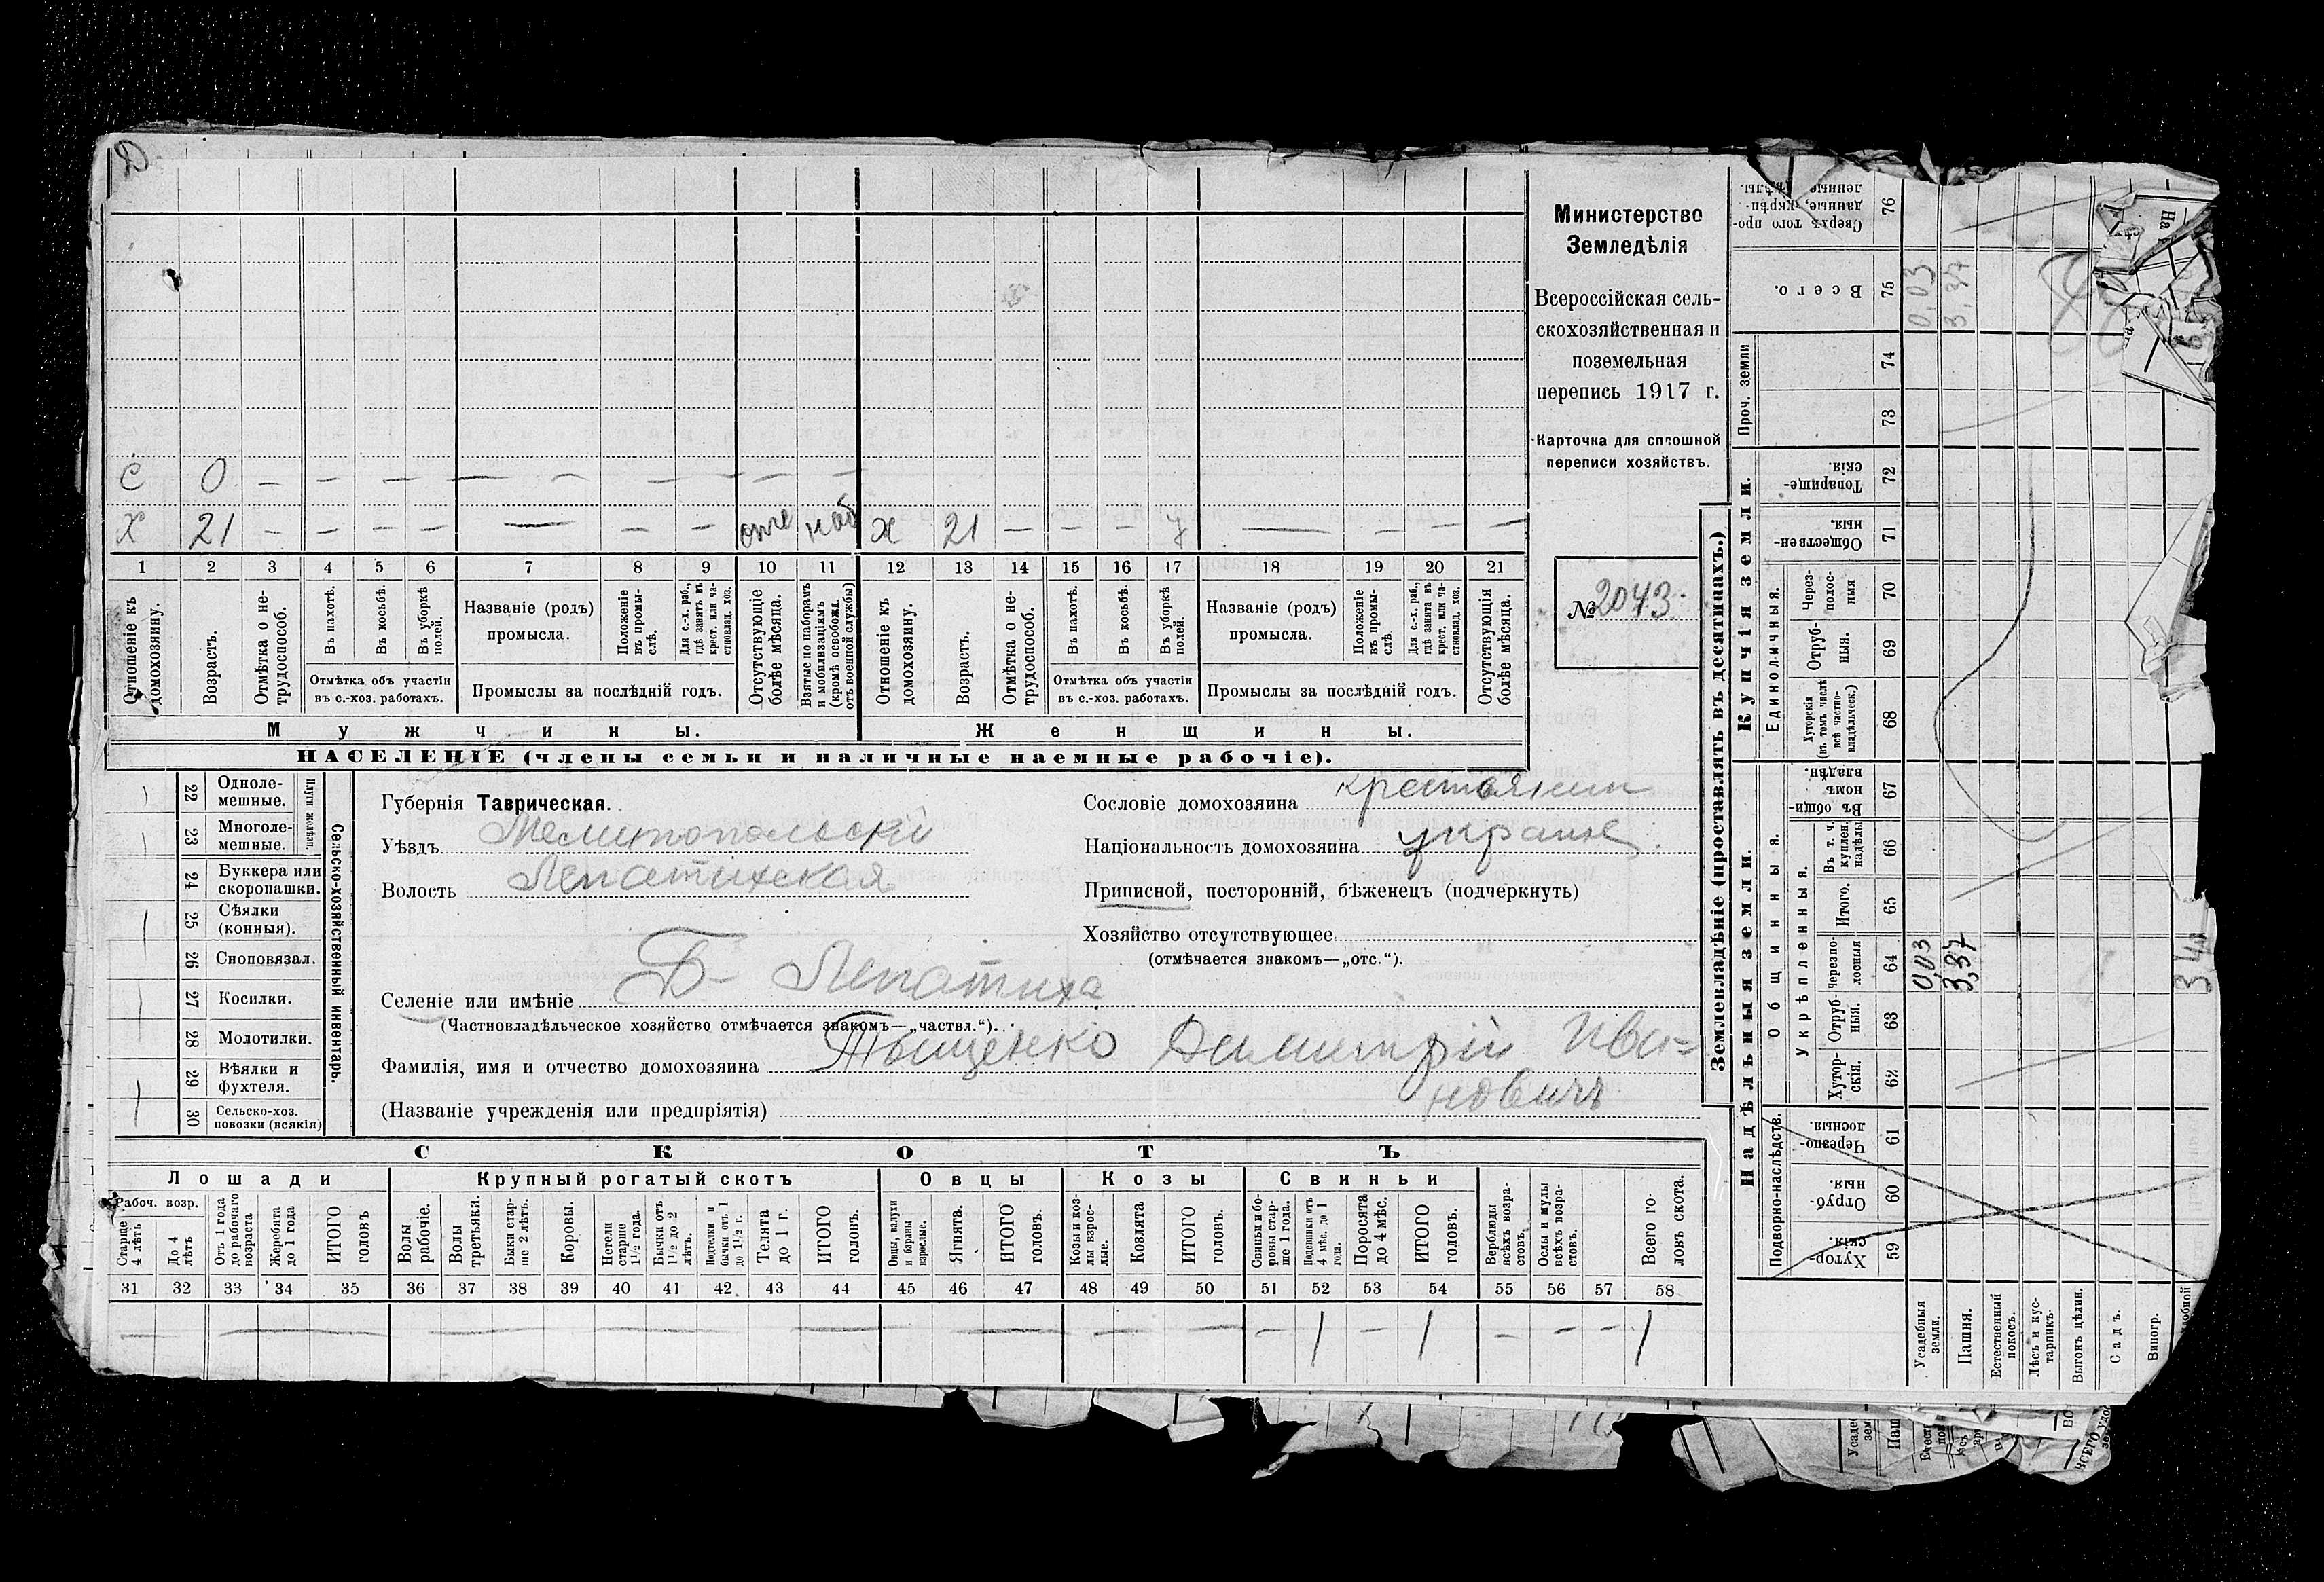 Д
С 0 — — — — — — — — —
Х 21 — — — — — — — отс наб х 21 — — — у — — — —
1 2 3 4 5 6 7 8 9 10 11 12 13 14 15 16 17 18 19 20 21
Отношеніе къ домохозяину.
Возрастъ.
Отмѣтка о не-трудоспособ.
Въ пахотѣ.
Въ косьбѣ.
Въ уборкѣ полей.
Отмѣтка объ участіи въ с.-хоз. работахъ.
Названіе (родъ) промысла.
Положеніе въ промы-слѣ.
Для с.-х. раб., гдѣ занятъ въ крест. или ча-стновлад. хоз.
Промыслы за послѣдній годъ.
Отсутствующіе болѣе мѣсяца.
Взятые по наборамъ и мобилизаціямъ (кромѣ освобожд. отъ военной службы)
Отношеніе къ домохозяину.
Возрастъ.
Отмѣтка о не-трудоспособ.
Въ пахотѣ.
Въ косьбѣ.
Въ уборкѣ полей.
Отмѣтка объ участіи въ с.-хоз. работахъ.
Названіе (родъ) промысла.
Положеніе въ промы-слѣ.
Для с.-х. раб., гдѣ занята въ крест. или ча-стновлад. хоз.
Промыслы за послѣдній годъ.
Отсутствующія болѣе мѣсяца.
Мужчины.
Женщины.
НАСЕЛЕНІЕ (члены семьи и наличные наемные рабочіе).
Министерство
Земледѣлія
Всероссійская сель-
скохозяйственная и
поземельная
перепись 1917 г.
Карточка для сплошной
переписи хозяйствъ.
№ 2043.
22 Одноле-мешные.
23 Многоле-мешные.
Плуги желѣзн.
24 Буккера или скоропашки.
25 Сѣялки (конныя).
26 Сноповязал.
27 Косилки.
28 Молотилки.
29 Вѣялки и фухтеля.
30 Сельско-хоз. повозки (всякія)
Сельско-хозяйственный инвентарь.
Губернія Таврическая.
Уѣздъ Мелитопольскій
Волость Лепатихская
Сословіе домохозяина крестьянин
Національность домохозяина украине.
Приписной, посторонній, бѣженецъ (подчеркнуть)
Хозяйство отсутствующее
(отмѣчается знакомъ—„отс.“).
Селеніе или имѣніе Б- Лепатиха
(Частновладѣльческое хозяйство отмѣчается знакомъ—„частвл.“).
Фамилія, имя и отчество домохозяина Тыщенко Димитрій Ива=
новичъ
(Названіе учрежденія или предпріятія)
СКОТЪ
Лошади
Крупный рогатый скотъ
Овцы
Козы
Свиньи
Рабоч. возр.
Старше 4 лѣтъ
До 4 лѣтъ
Отъ 1 года до рабочаго возраста
Жеребята до 1 года
ИТОГО головъ
Волы рабочіе.
Волы третьяки.
Быки стар-ше 2 лѣтъ.
Коровы.
Нетели старше 1½ года.
Бычки отъ 1½ до 2 лѣтъ.
Подтелки и бычки отъ 1 до 1½ г.
Телята до 1 г.
ИТОГО головъ.
Овцы, валухи и бараны взрослые.
Ягнята.
ИТОГО головъ.
Козы и коз-лы взрос-лые.
Козлята
ИТОГО головъ.
Свиньи и бо-ровы стар-ше 1 года.
Подсвинки отъ 4 мѣс. до 1 года.
Поросята до 4 мѣс.
ИТОГО головъ.
Верблюды всѣхъ возра-стовъ.
Ослы и мулы всѣхъ возра-стовъ.
Всего го-ловъ скота.
31 32 33 34 35 36 37 38 39 40 41 42 43 44 45 46 47 48 49 50 51 52 53 54 55 56 57 58
— — — — — — — — — — — — 1 1 — — — 1
Землевладѣніе (проставлять въ десятинахъ.)
Купчія земли.
Надѣльныя земли.
Сверхъ того про-данные, укрѣп-ленные надѣлы. 76
Всего. 75 0,03 3,37
Проч. земли 74 73
Товарище-скія. 72
Обществен-ныя. 71
Единоличныя.
Через-полос-ныя 70
Отруб-ныя. 69
Хуторскія (въ томъ числѣ всѣ частно-владѣльческ.) 68
Общинныя.
Въ общи-номъ владѣн. 67
Укрѣпленныя.
Въ т. ч. куплен. надѣлы 66
Итого. 65
Черезпо-лосныя 64 0,03 3,37 340
Отруб-ныя. 63
Хутор-скія. 62
Подворно-наслѣдств.
Черезпо-лосныя. 61
Отруб-ныя. 60
Хутор-скія. 59
Усадебныя земли.
Пашня.
Естественный покосъ.
Лѣсъ и кус-тарникъ.
Выгонъ цѣлин.
Садъ.
Виногр.